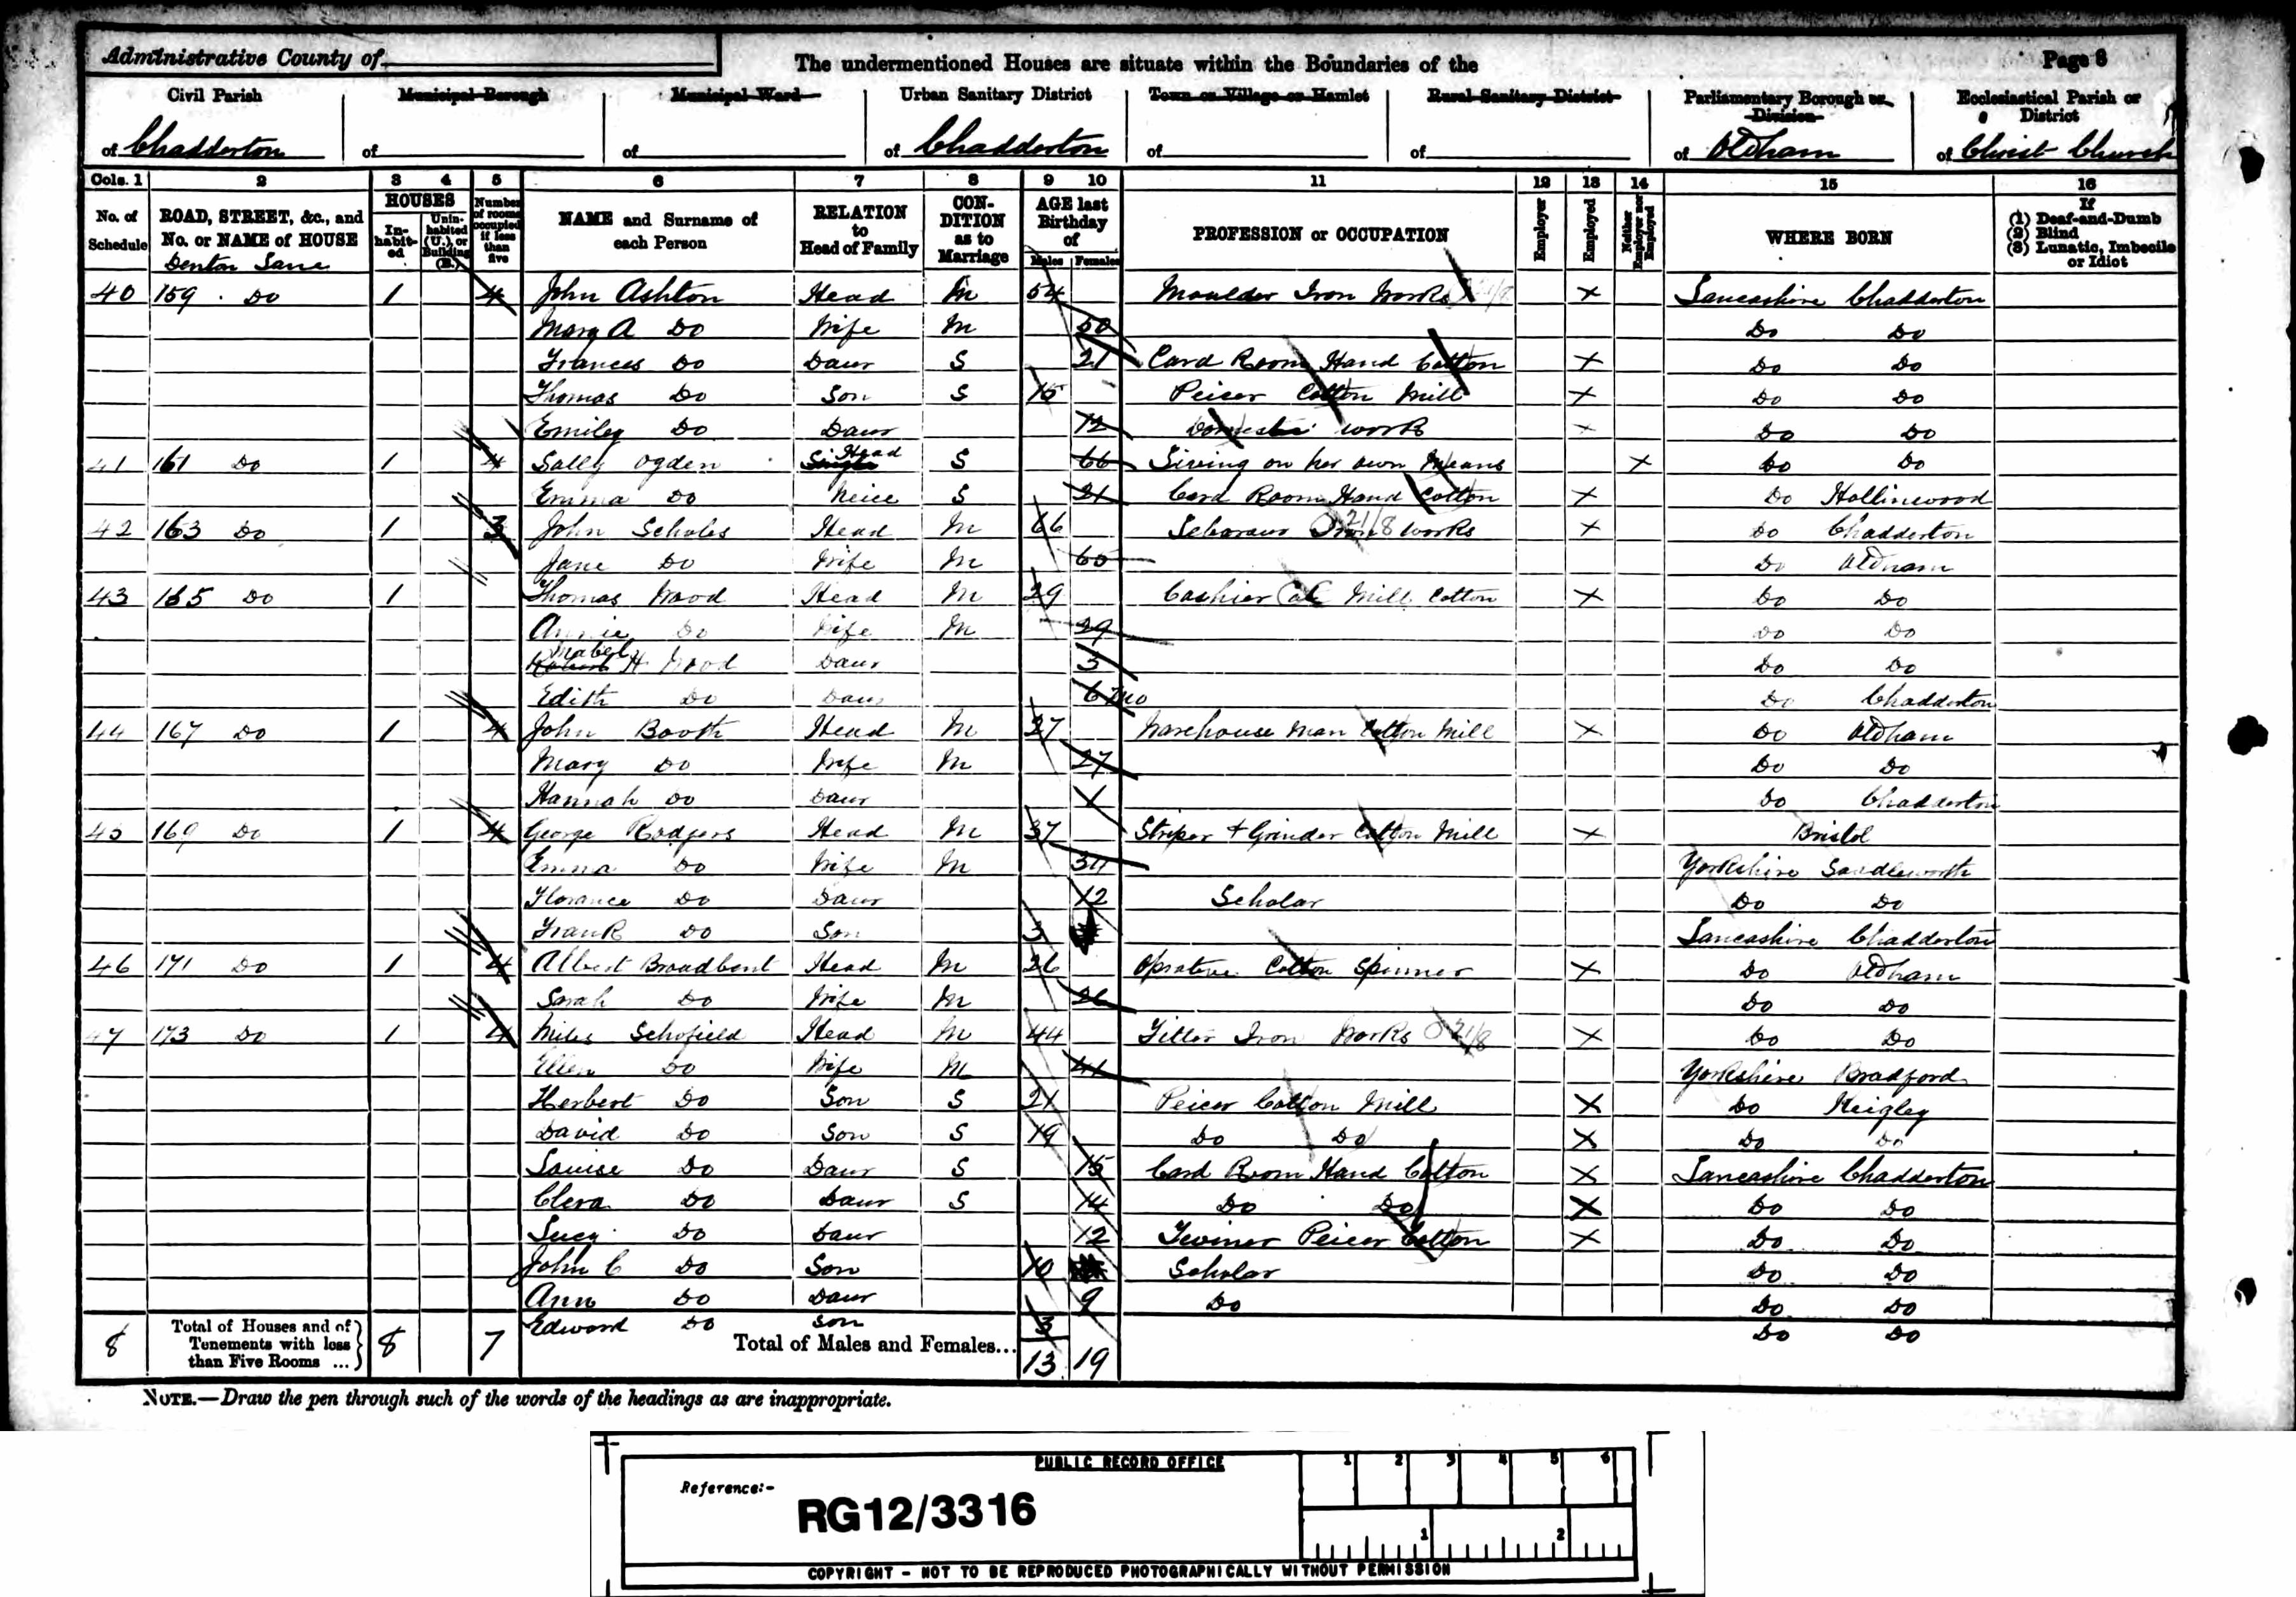 Administrative County of
The undermentioned Houses are situate within the Boundaries of the
Page 8
Civil Parish of Chadderton
Municipal Borough of
Municipal Ward of
Urban Sanitary District of Chadderton
Town or Village or Hamlet of
Rural Sanitary District of
Parliamentary Borough or Division of Oldham
Ecclesiastical Parish or District of Christ Church
Cols. 1 2 3 4 5 6 7 8 9 10 11 12 13 14 15 16
No. of Schedule
ROAD, STREET, &c., and No. or NAME of HOUSE
HOUSES
In-habit-ed
Unin-habited (U.), or Building (B.)
Number of rooms occupied if less than five
NAME and Surname of each Person
RELATION to Head of Family
CON-DITION as to Marriage
AGE last Birthday of
Males Females
PROFESSION or OCCUPATION
Employer
Employed
Neither Employer nor Employed
WHERE BORN
If
(1) Deaf-and-Dumb
(2) Blind
(3) Lunatic, Imbecile or Idiot
Denton Lane
40 159 Do 1 4 John Ashton Head M 54 Moulder Iron Works X Lancashire Chadderton
Mary A Do Wife M 50 Do Do
Frances Do Daur S 21 Card Room Hand Cotton X Do Do
Thomas Do Son S 15 Peicer Cotton Mill X Do Do
Emiley Do Daur 12 Domestic work X Do Do
41 161 Do 1 4 Sally Ogden Single Head S 66 Living on her own Means X Do Do
Emma Do Neice S 21 Card Room Hand Cotton X Do Hollinwood
42 163 Do 1 3 John Scholes Head M 66 Iron works 21/8 X Do Chadderton
Jane Do Wife M 60 Do Oldham
43 165 Do 1 Thomas Wood Head M 29 Cashier Mill Cotton X Do Do
Annie Do Wife M 29 Do Do
Mabel H Wood Daur 3 Do Do
Edith Do Daur Do Chadderton
44 167 Do 1 4 John Booth Head M 27 Warehouse Man Cotton Mill X Do Oldham
Mary Do Wife M 27 Do Do
Hannah Do Daur 1 Do Chadderton
45 169 Do 1 4 George Rodgers Head M 37 Striper & Grinder Cotton Mill X Bristol
Emma Do Wife M 34 Yorkshire Saddleworth
Florance Do Daur 12 Scholar Do Do
Frank Do Son 3 Lancashire Chadderton
46 171 Do 1 4 Albert Broadbent Head M 26 Oprative Cotton Spinner X Do Oldham
Sarah Do Wife M 26 Do Do
47 173 Do 1 4 Miles Schofield Head M 44 Fitter Iron Works 21/8 X Do Do
Ellen Do Wife M 41 Yorkshire Bradford
Herbert Do Son S 21 Peicer Cotton Mill X Do Keigley
David Do Son S 19 Do Do X Do Do
Louise Do Daur S 15 Card Room Hand Cotton X Lancashire Chadderton
Clera Do Daur S 14 Do Do X Do Do
Lucy Do Daur 12 Twiner Peicer Cotton X Do Do
John C Do Son 10 Scholar Do Do
Ann Do Daur 9 Do Do Do
Edward Do Son 3 Do Do
8 Total of Houses and of Tenements with less than Five Rooms ... 8 7 Total of Males and Females... 13 19
NOTE.—Draw the pen through such of the words of the headings as are inappropriate.
PUBLIC RECORD OFFICE
1 2 3 4 5 6
Reference:-
RG12/3316
1 2
COPYRIGHT - NOT TO BE REPRODUCED PHOTOGRAPHICALLY WITHOUT PERMISSION